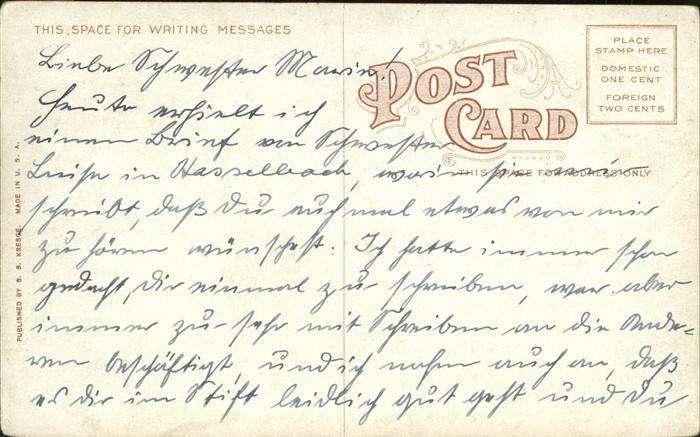 THIS SPACE FOR WRITING MESSAGES
POST CARD
PLACE
STAMP HERE
DOMESTIC
ONE CENT
FOREIGN
TWO CENTS
THIS SPACE FOR ADDRESS ONLY
PUBLISHED BY S. S. KRESGE. MADE IN U. S. A.
Liebe Schwester Marie!
Heute erhielt ich
einen Brief von Schwester
Luise in Hasselbach, worin sie
schreibt, daß Du auch mal etwas von mir
zu hören wünschest. Ich hatte immer schon
gedacht, Dir einmal zu schreiben, war aber
immer zu sehr mit Schreiben an die Ande-
ren beschäftigt, und ich nahm auch an, daß
es dir im Stift leidlich gut geht und Du